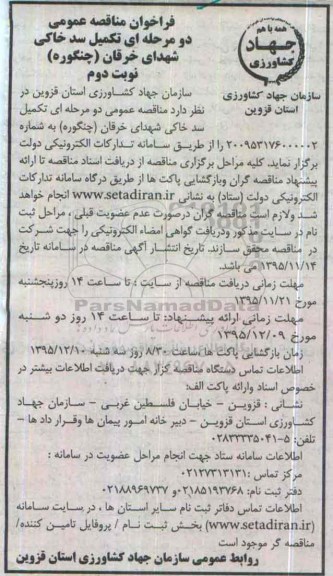 همه با هم
جهاد
کشاورزی
سازمان جهاد کشاورزی
استان قزوین
فراخوان مناقصه عمومی
دو مرحله ای تکمیل سد خاکی
شهدای خرقان (چنگوره)
نوبت دوم
سازمان جهاد کشاورزی استان قزوین در
نظر دارد مناقصه عمومی دو مرحله ای تکمیل
سد خاکی شهدای خرقان (چنگوره) به شماره
۲۰۰۹۵۳۱۷۶۰۰۰۰۰۲ را از طریق سامانه تدارکات الکترونیکی دولت
برگزار نماید. کلیه مراحل برگزاری مناقصه از دریافت اسناد مناقصه تا ارائه
پیشنهاد مناقصه گران وبازگشایی پاکت ها از طریق درگاه سامانه تدارکات
الکترونیکی دولت (ستاد) به نشانی www.setadiran.ir انجام خواهد
شد ولازم است مناقصه گران درصورت عدم عضویت قبلی ، مراحل ثبت
نام در سایت مذکور ودریافت گواهی امضاء الکترونیکی را جهت شرکت
در مناقصه محقق سازند. تاریخ انتشار آگهی مناقصه در سامانه تاریخ
۱۳۹۵/۱۱/۱۴ می باشد.
مهلت زمانی دریافت مناقصه از سایت : تا ساعت ۱۴ روزپنجشنبه
مورخ ۱۳۹۵/۱۱/۲۱
مهلت زمانی ارائه پیشنهاد: تا ساعت ۱۴ روز دو شنبه
مورخ ۱۳۹۵/۱۲/۰۹
زمان بازگشایی پاکت ها :ساعت ۸/۳۰ روز سه شنبه ۱۳۹۵/۱۲/۱۰
اطلاعات تماس دستگاه مناقصه گزار جهت دریافت اطلاعات بیشتر در
خصوص اسناد وارائه پاکت الف:
نشانی : قزوین - خیابان فلسطین غربی - سازمان جهاد
کشاورزی استان قزوین - دبیر خانه امور پیمان ها وقرار داد ها -
تلفن: ۵-۰۲۸۳۳۳۳۵۰۴۱
اطلاعات سامانه ستاد جهت انجام مراحل عضویت در سامانه :
مرکز تماس :۰۲۱۲۷۳۱۳۱۳۱
دفتر ثبت نام: ۰۲۱۸۵۱۹۳۷۶۸ و ۰۲۱۸۸۹۶۹۷۳۷
اطلاعات تماس دفاتر ثبت نام سایر استان ها ، در سایت سامانه
(www.setadiran.ir) بخش ثبت نام / پروفایل تامین کننده/
مناقصه گر موجود است
روابط عمومی سازمان جهاد کشاورزی استان قزوین